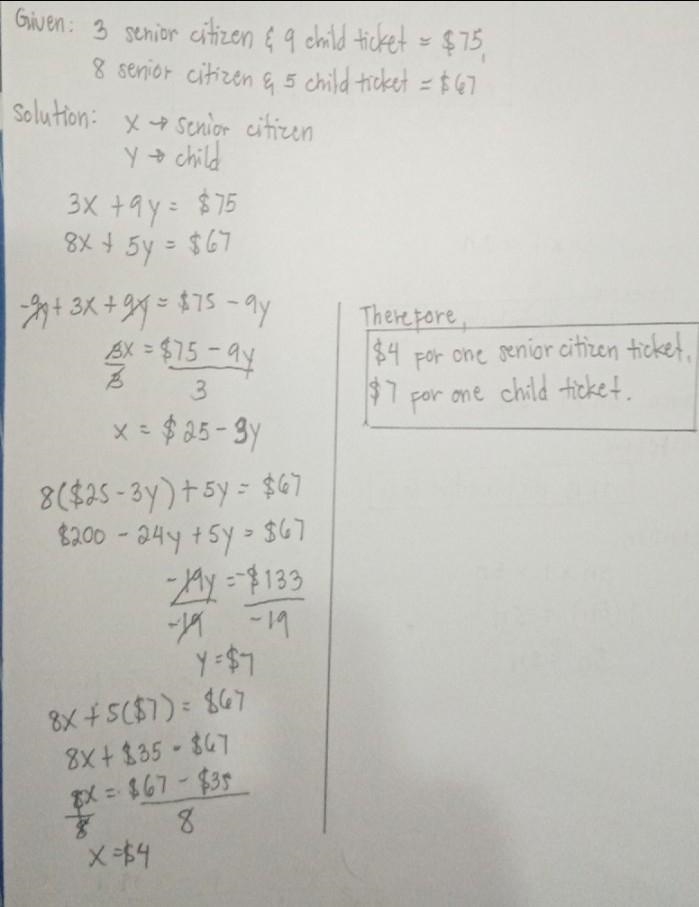 Given: 3 senior citizen & 9 child ticket = $75,
8 senior citizen & 5 child ticket = $67
Solution: X → senior citizen
Y → child
3X + 9y = $75
8X + 5y = $67
-9y + 3X + 9y = $75 - 9y
3X = $75 - 9y
3 3
X = $25 - 3y
8($25 - 3y) + 5y = $67
$200 - 24y + 5y = $67
-19y = -$133
-19 -19
Y = $7
8X + 5($7) = $67
8X + $35 = $67
8X = $67 - $35
8 8
X = $4
Therefore,
$4 for one senior citizen ticket,
$7 for one child ticket.